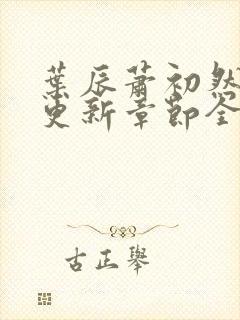 葉辰蕭初然
更新章節全
古正舉